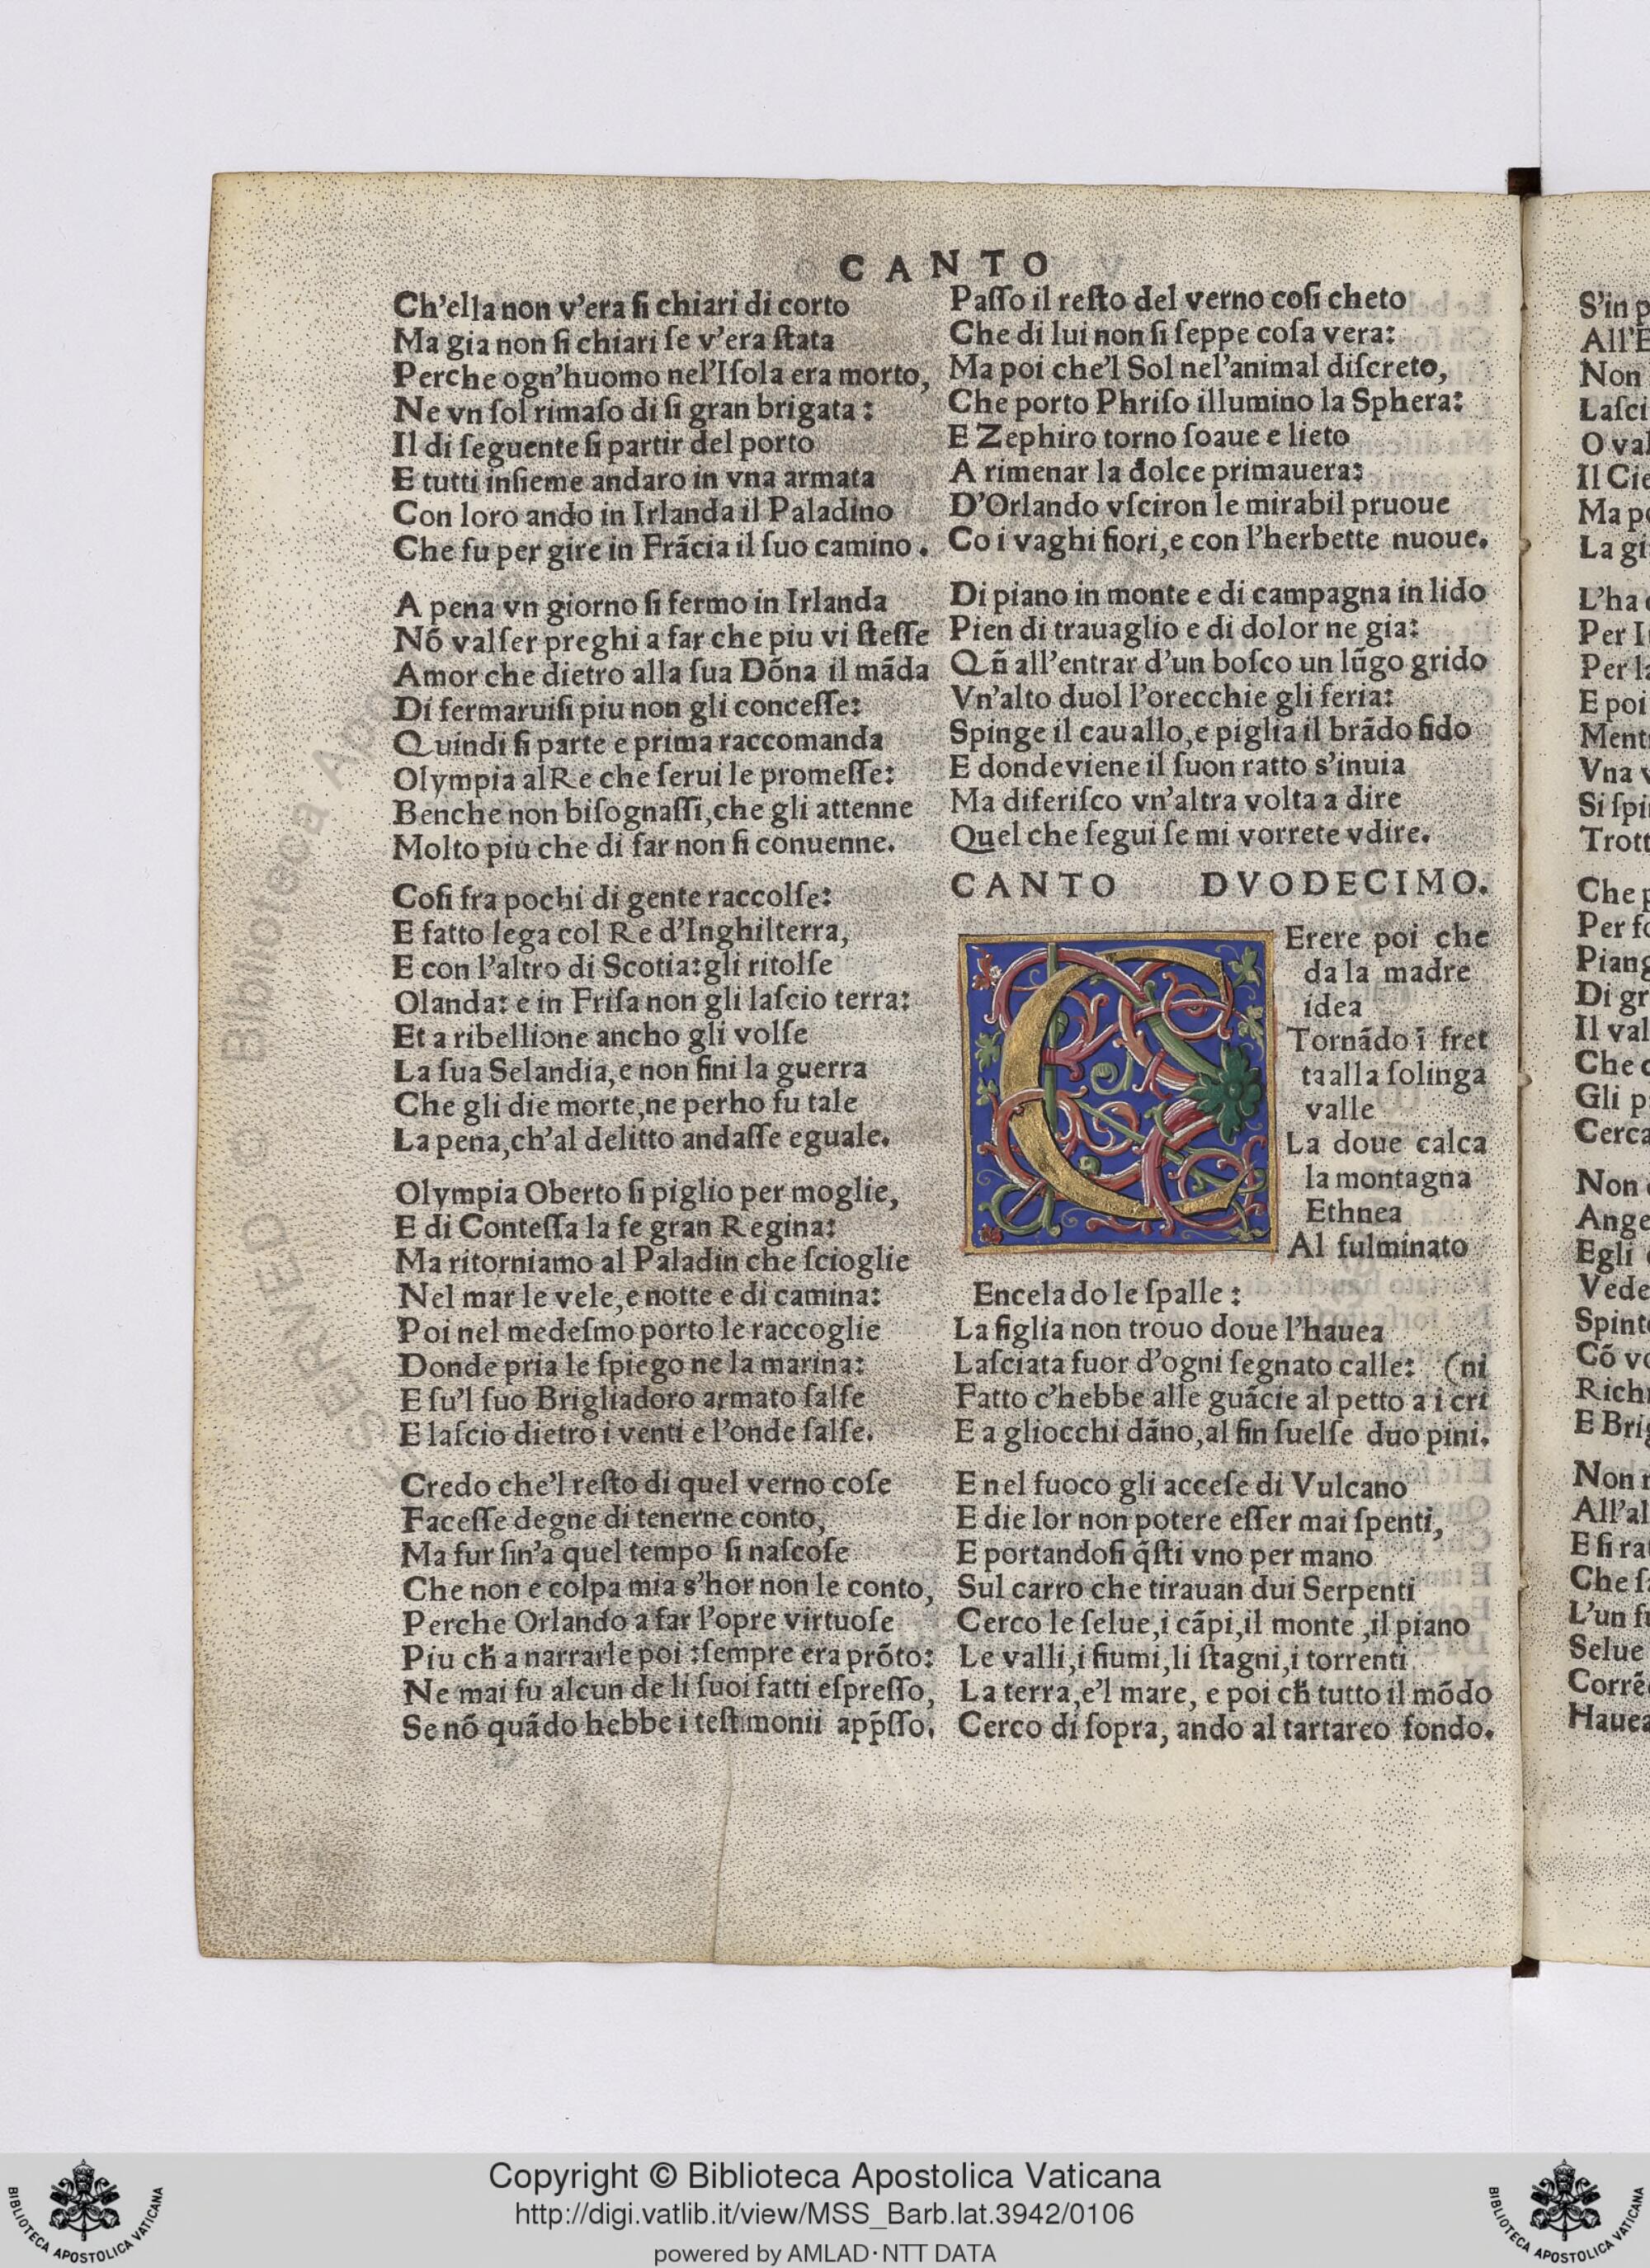 CANTO
Ch'ella non v'era ſi chiari di corto
Ma gia non ſi chiari ſe v'era ſtata
Perche ogn'huomo nel'Iſola era morto,
Ne vn ſol rimaſo di ſi gran brigata:
Il di ſeguente ſi partir del porto
E tutti inſieme andaro in vna armata
Con loro ando in Irlanda il Paladino
Che fu per gire in Frãcia il ſuo camino.
A pena vn giorno ſi fermo in Irlanda
Nõ valſer preghi a far che piu vi ſteſſe
Amor che dietro alla ſua Dõna il mãda
Di fermaruiſi piu non gli conceſſe:
Quindi ſi parte e prima raccomanda
Olympia al Re che ſerui le promeſſe:
Benche non biſognaſſi, che gli attenne
Molto piu che di far non ſi conuenne.
Coſi fra pochi di gente raccolſe:
E fatto lega col Re d'Inghilterra,
E con l'altro di Scotia: gli ritolſe
Olanda: e in Friſa non gli laſcio terra:
Et a ribellione ancho gli volſe
La ſua Selandia, e non fini la guerra
Che gli die morte, ne perho fu tale
La pena, ch'al delitto andaſſe eguale.
Olympia Oberto ſi piglio per moglie,
E di Conteſſa la fe gran Regina:
Ma ritorniamo al Paladin che ſcioglie
Nel mar le vele, e notte e di camina:
Poi nel medeſmo porto le raccoglie
Donde pria le ſpiego ne la marina:
E ſu'l ſuo Brigliadoro armato ſalſe
E laſcio dietro i venti e l'onde ſalſe.
Credo che'l reſto di quel verno coſe
Faceſſe degne di tenerne conto,
Ma fur ſin'a quel tempo ſi naſcoſe
Che non e colpa mia s'hor non le conto,
Perche Orlando a far l'opre virtuoſe
Piu cħ a narrarle poi: ſempre era prõto:
Ne mai fu alcun de li ſuoi fatti eſpreſſo,
Se nõ quãdo hebbe i teſtimonii app̃ſſo.
Paſſo il reſto del verno coſi cheto
Che di lui non ſi ſeppe coſa vera:
Ma poi che'l Sol nel'animal diſcreto,
Che porto Phriſo illumino la Sphera:
E Zephiro torno ſoaue e lieto
A rimenar la dolce primauera:
D'Orlando vſciron le mirabil pruoue
Co i vaghi fiori, e con l'herbette nuoue.
Di piano in monte e di campagna in lido
Pien di trauaglio e di dolor ne gia:
Qñ all'entrar d'un boſco un lũgo grido
Vn'alto duol l'orecchie gli feria:
Spinge il cauallo, e piglia il brãdo fido
E donde viene il ſuon ratto s'inuia
Ma diferiſco vn'altra volta a dire
Quel che ſegui ſe mi vorrete vdire.
CANTO DVODECIMO.
CErere poi che
da la madre
idea
Tornãdo ĩ fret
ta alla ſolinga
valle
La doue calca
la montagna
Ethnea
Al fulminato
Encelado le ſpalle:
La figlia non trouo doue l'hauea
Laſciata fuor d'ogni ſegnato calle: (ni
Fatto c'hebbe alle guãcie al petto a i cri
E a gliocchi dãno, al fin ſuelſe duo pini.
E nel fuoco gli acceſe di Vulcano
E die lor non potere eſſer mai ſpenti,
E portandoſi q̃ſti vno per mano
Sul carro che tirauan dui Serpenti
Cerco le ſelue, i cãpi, il monte, il piano
Le valli, i fiumi, li ſtagni, i torrenti
La terra, e'l mare, e poi cħ tutto il mõdo
Cerco di ſopra, ando al tartareo fondo.
S'in p
All'E
Non
Laſci
O val
Il Cie
Ma po
La gi
L'ha
Per I
Per la
E poi
Ment
Vna v
Si ſpi
Trott
Che p
Per fo
Piang
Di gr
Il val
Che
Gli p
Cerca
Non
Ange
Egli
Vede
Spint
Cõ vo
Rich
E Brig
Non
All'al
E ſi ra
Che ſ
L'un
Selue
Corrẽ
Hauea
Copyright © Biblioteca Apostolica Vaticana
http://digi.vatlib.it/view/MSS_Barb.lat.3942/0106
powered by AMLAD·NTT DATA
BIBLIOTECA APOSTOLICA VATICANA
BIBLIOTECA APOSTOLICA VATICANA